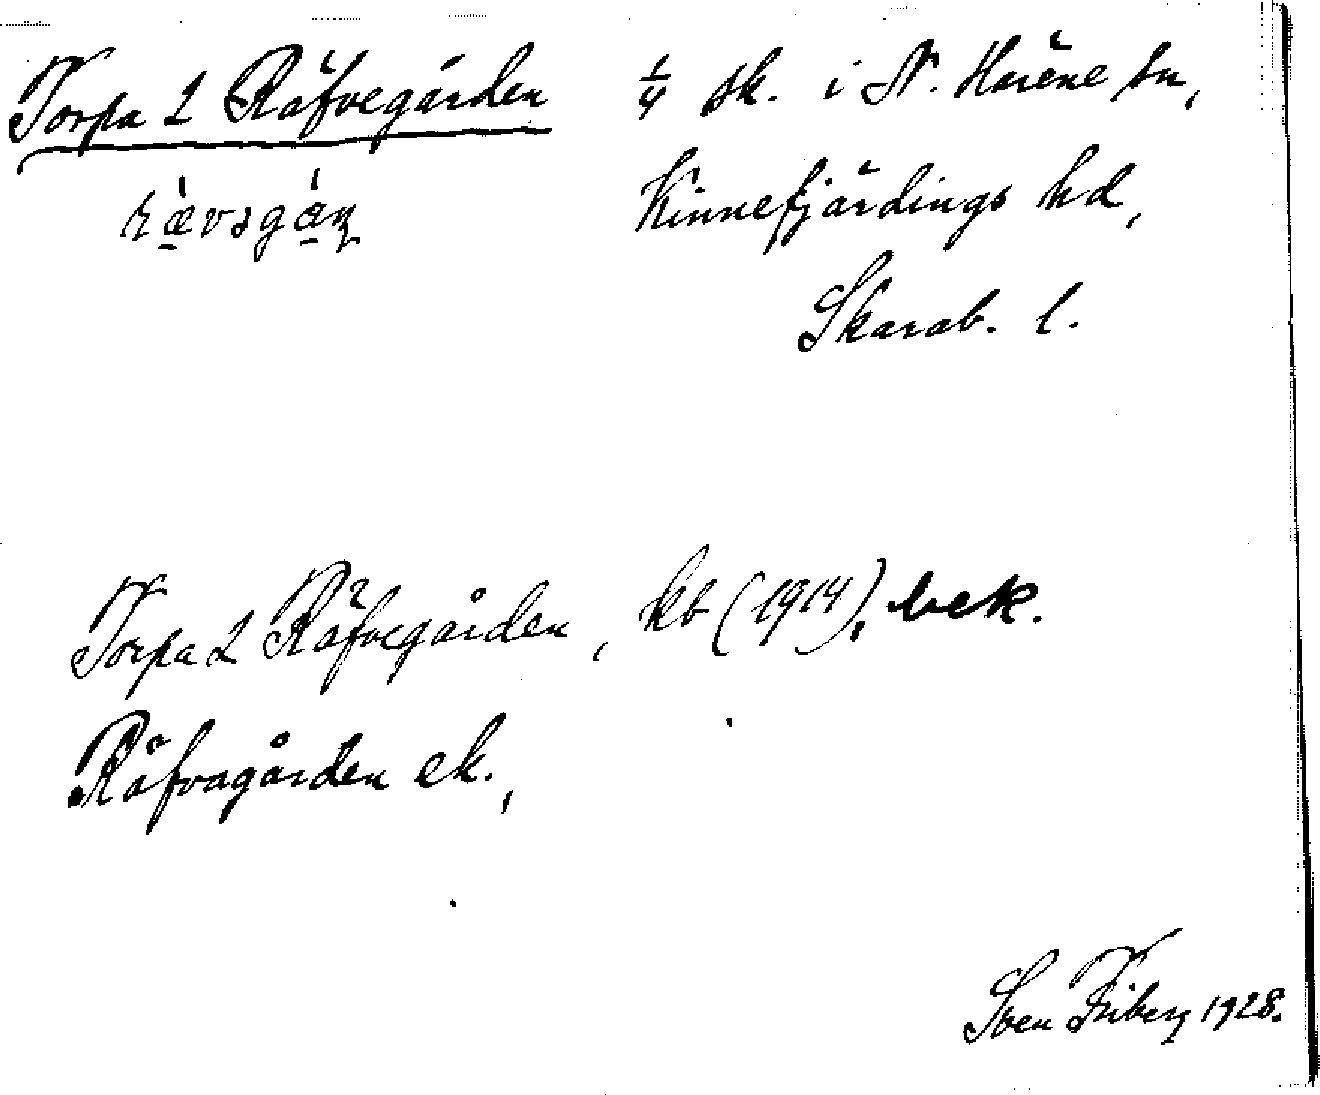 Torpa 2 Räfvegården
1/4 sk. i N. Härene sn,
Kinnefjärdings hd,
Skarab. l.
Torpa 2 Räfvegården, kb (1914), bek.
Räfvagården ek.,
Sven Friberg 1928.